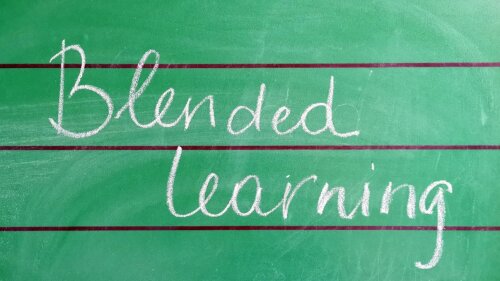 Blended
learning